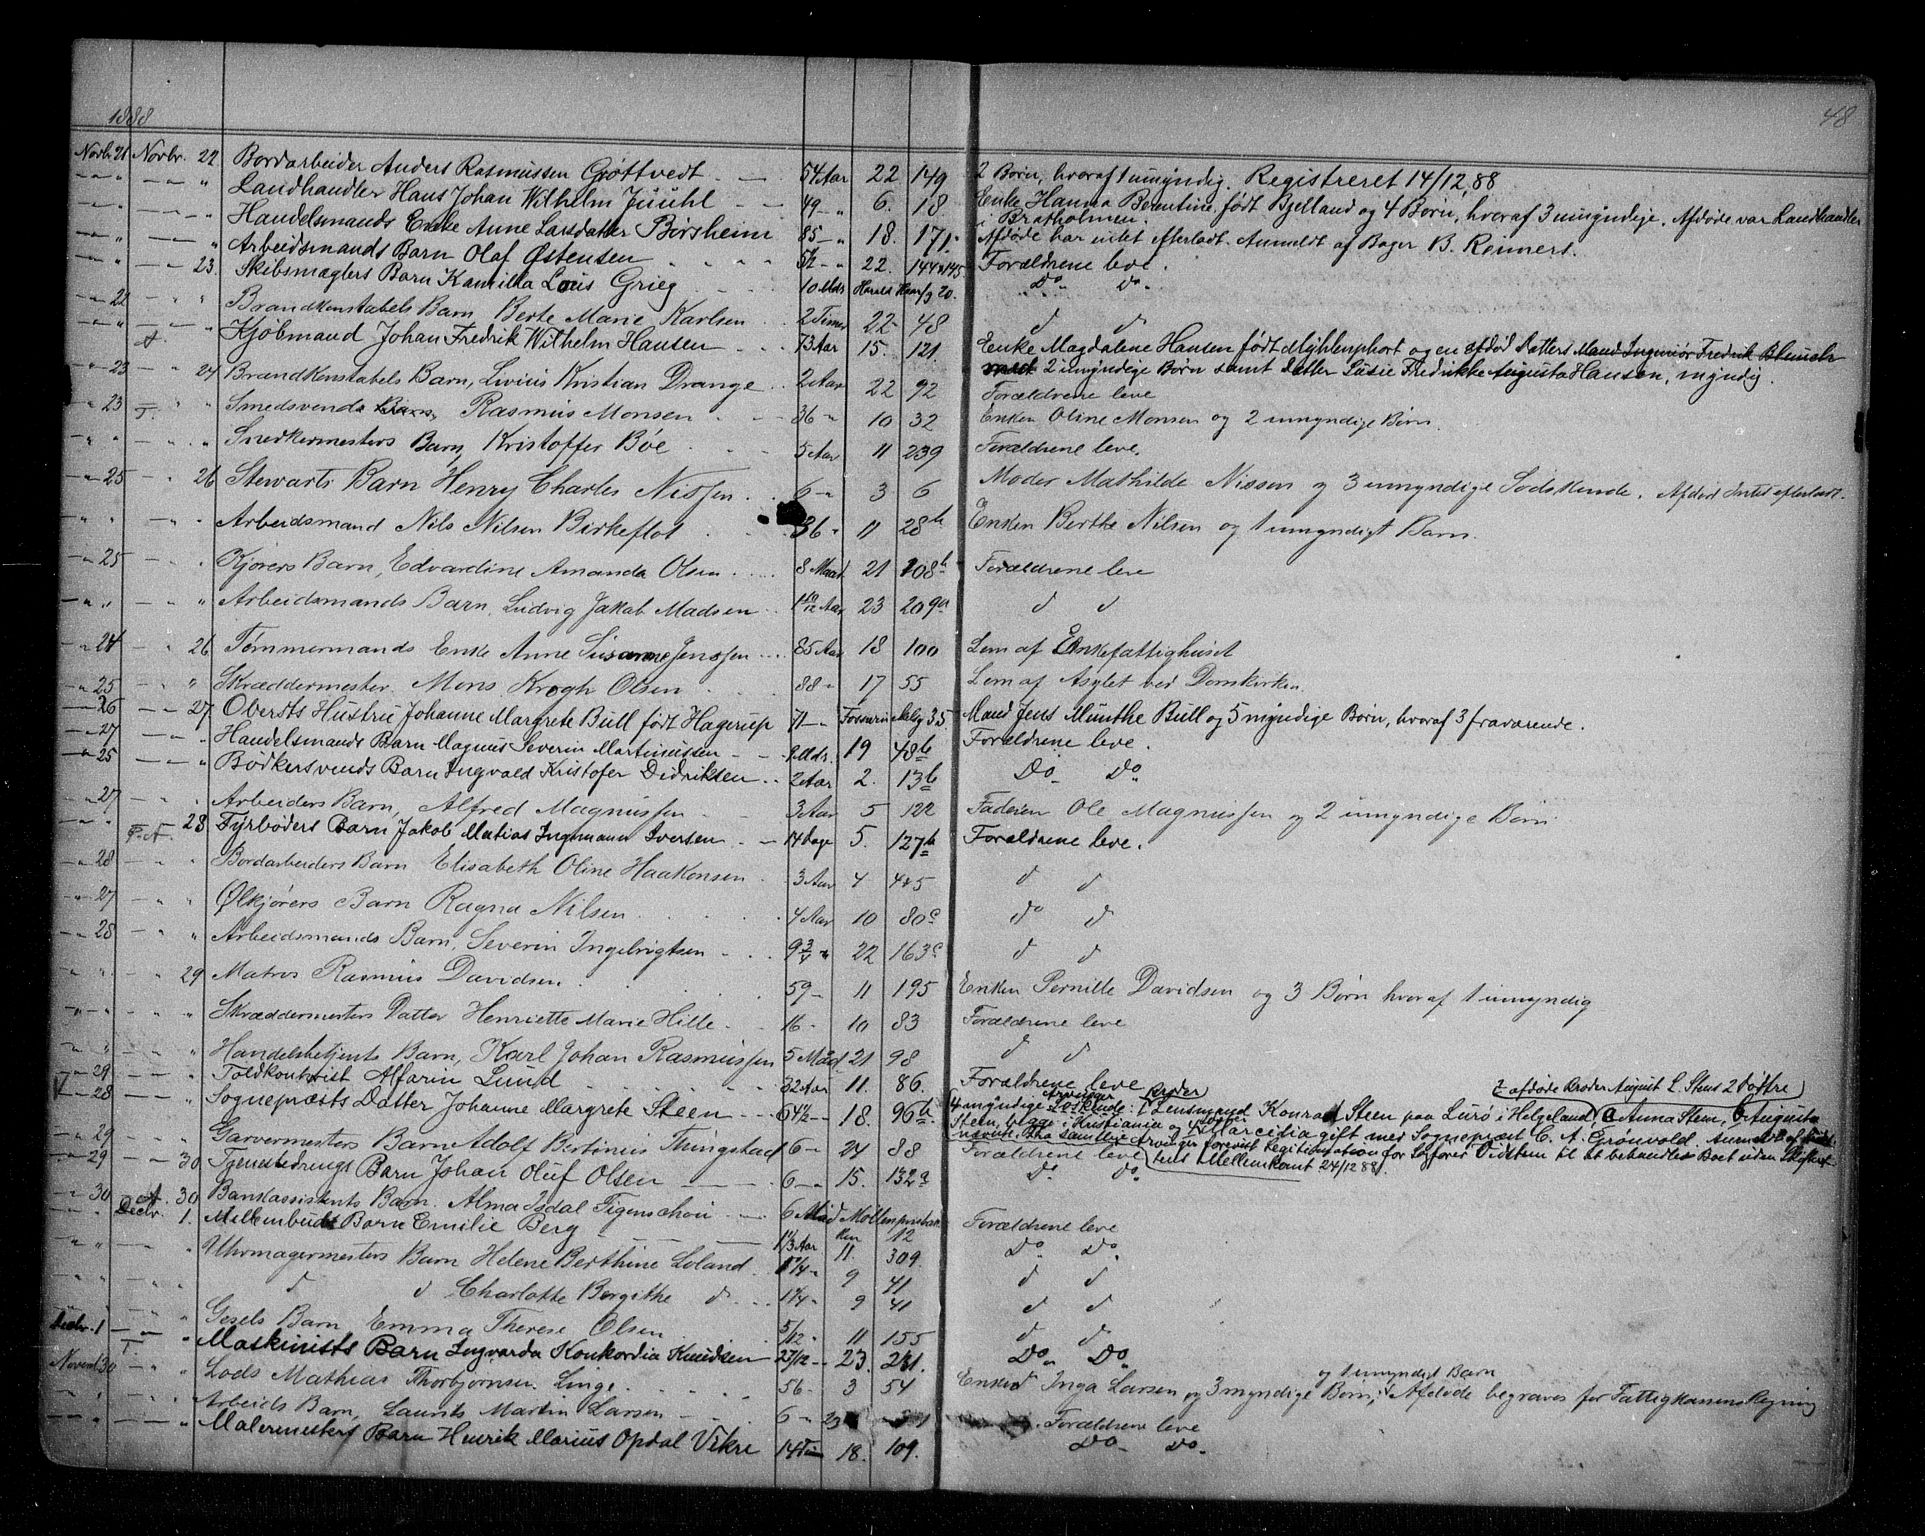 1888
48
Novbr. 21 Novbr. 22 Bordarbeider Anders Rasmussen Gröttvedt 54 Aar 22 149 2 Børn, hvoraf 1 umyndig. Registreret 14/12 88
Landhandler Hans Johan Wilhelm Jüühl 49 6. 18 Enke Hanna Berentine født Bjelland og 4 Børn, hvoraf 3 umyndige. Afdøde var Landhandler
i Bratholmen.
Handelsmands Enke Anne Larsdatter Börsheim 85 18. 171. Afdøde har intet efterladt. Anmeldt af Bager B. Reimers.
Arbeidsmands Barn Olaf Østensen 22. 144 145 Forældrene leve.
23. Skibsmæglers Barn Kamilla Louis Grieg 10 Mdr Harald Haarfg 20. Do. Do.
22 Brandkonstabels Barn Berte Marie Karlsen 2 Timer 22 48 d d
A. Kjöbmand Johan Fredrik Wilhelm Hansen 73 Aar 15. 121. Enke Magdalene Hansen født og en afdöd Datters Mand Ingeniör Fredrik
2 umyndige Børn samt Datter Susie Fredrikke Augusta Hansen, myndig.
23 24 Brandkonstabels Barn, Livius Kristian Drange 2 Aar 22 92 Forældrene leve
23 T. Smedsvend Rasmus Monsen 36 10 32 Enken Oline Monsen og 2 umyndige Børn
Snedkermesters Barn, Kristoffer Böe 5 Aar 11 239 Forældrene leve.
25 26 Stewarts Barn Henry Charles Nissen 6 3 6 Moder Mathilde Nissen og 3 umyndige Sødskende. Afdöd Intet efterladt.
Arbeidsmand Nils Nilsen Birkeflot 36 11 28b Enken Berthe Nilsen og 1 umyndigt Barn.
25 Kjörers Barn, Edvardine Amanda Olsen 8 Maad 21 208b Forældrene leve
Arbeidsmands Barn, Ludvig Jakob Madsen 1 10/12 Aar 23 209a d d
24 26 Tømmermands Enke Anne Susanne Jenssen 85 Aar 18 100 Lem af Enkefattighuset
25 Skræddermester Mons Krogh Olsen 88 17 55 Lem af Asylet ved Domkirken.
26 27 Obersts Hustru Johanne Margrete Bull født Hagerup 71 35. Mand Jens Munthe Bull og 5 myndige Børn, hvoraf 3 fraværende.
27 Handelsmands Barn Magnus Severin Martinussen Mdr. 19 48b Forældrene leve.
25 Bödkersvends Barn Ingvald Kristofer Didriksen 2 Aar 2. 13b Do. Do.
27 Arbeiders Barn, Alfred Magnussen 3 Aar 5 12a Faderen Ole Magnussen og 2 umyndige Børn
28 Fyrböders Barn Jakob Matias Ingemann Iversen 14 Dage 5. 127b Forældrene leve.
28 Bordarbeiders Barn Elisabeth Oline Haakonsen 3 Aar 4 445 d d
27 Ølkjörers Barn Ragna Nilsen 4 Aar 10 80c do d
28 Arbeidsmands Barn, Severin Ingebrigtsen 9 3/4 22 163c d d
29 Matros Rasmus Davidsen 59 11 195 Enken Pernille Davidsen og 3 Børn hvoraf 1 umyndig
Skræddermesters Datter Henriette Marie Hille 16 10 83 Forældrene leve
Handelsbetjents Barn, Karl Johan Rasmussen 5 Maad 21 98 d d
29 Toldkontorist Alfarin Lund 32 Aar 11. 86. Forældrene leve
28 Sognepræsts Datter Johanne Margrete Steen 64½ 18. 96b 4 myndige Arvinger: 1 Broder Lensmand Konrad Steen paa Lurø i Helgeland, 2 afdöde Broder August L. Stens 2 Døttre a Anna Steen, b Augusta
Steen, begge i Kristiania og gift med Sognepræst C. A. Grönvold. Anmeldt af
samtlige Arvinger forevist Legitimation for til at behandle Boet uden Skifterettens Mellemkomst 24/12 88.
29 Garvermesters Barn Adolf Bertinius Thingstad 6 24 88 Forældrene leve
29 30 Tjenestedrengs Barn Johan Oluf Olsen 6 15. 132a Do. Do.
30 A. 30 Bankassistents Barn. Alma Isdal Tigenschou 6 Maad Möllenprisbakken 12 Forældrene leve
Decbr. 1. Mellembuds Barn Emilie Berg 1 1/3 Aar 11. 309. Do. Do.
Uhrmagermesters Barn Helene Berthine Loland 1 1/4 9 41 d d
d d Charlotte Bergithe d 1 1/4 9 41 d d
Gesels Barn Emma Therese Olsen 5/12 11 155 d d
Decbr. 1 T. Maskinists Barn Ingvarda Konkordia Knudsen 2 7/12 23. 231. Do. Do.
Novembr 30 Lods Mathias Thorbjörnsen Linge 56 3 54 Enken Inga Larsen og 3 myndige Børn, og 1 umyndigt Barn Afdøde begraves for Fattigkassens Regning
Arbeids Barn, Laurits Martin Larsen 6 23 Forældrene leve
Malermesters Barn Henrik Marius Opdal Vikre 14 Tim 18. 109. Do. Do.